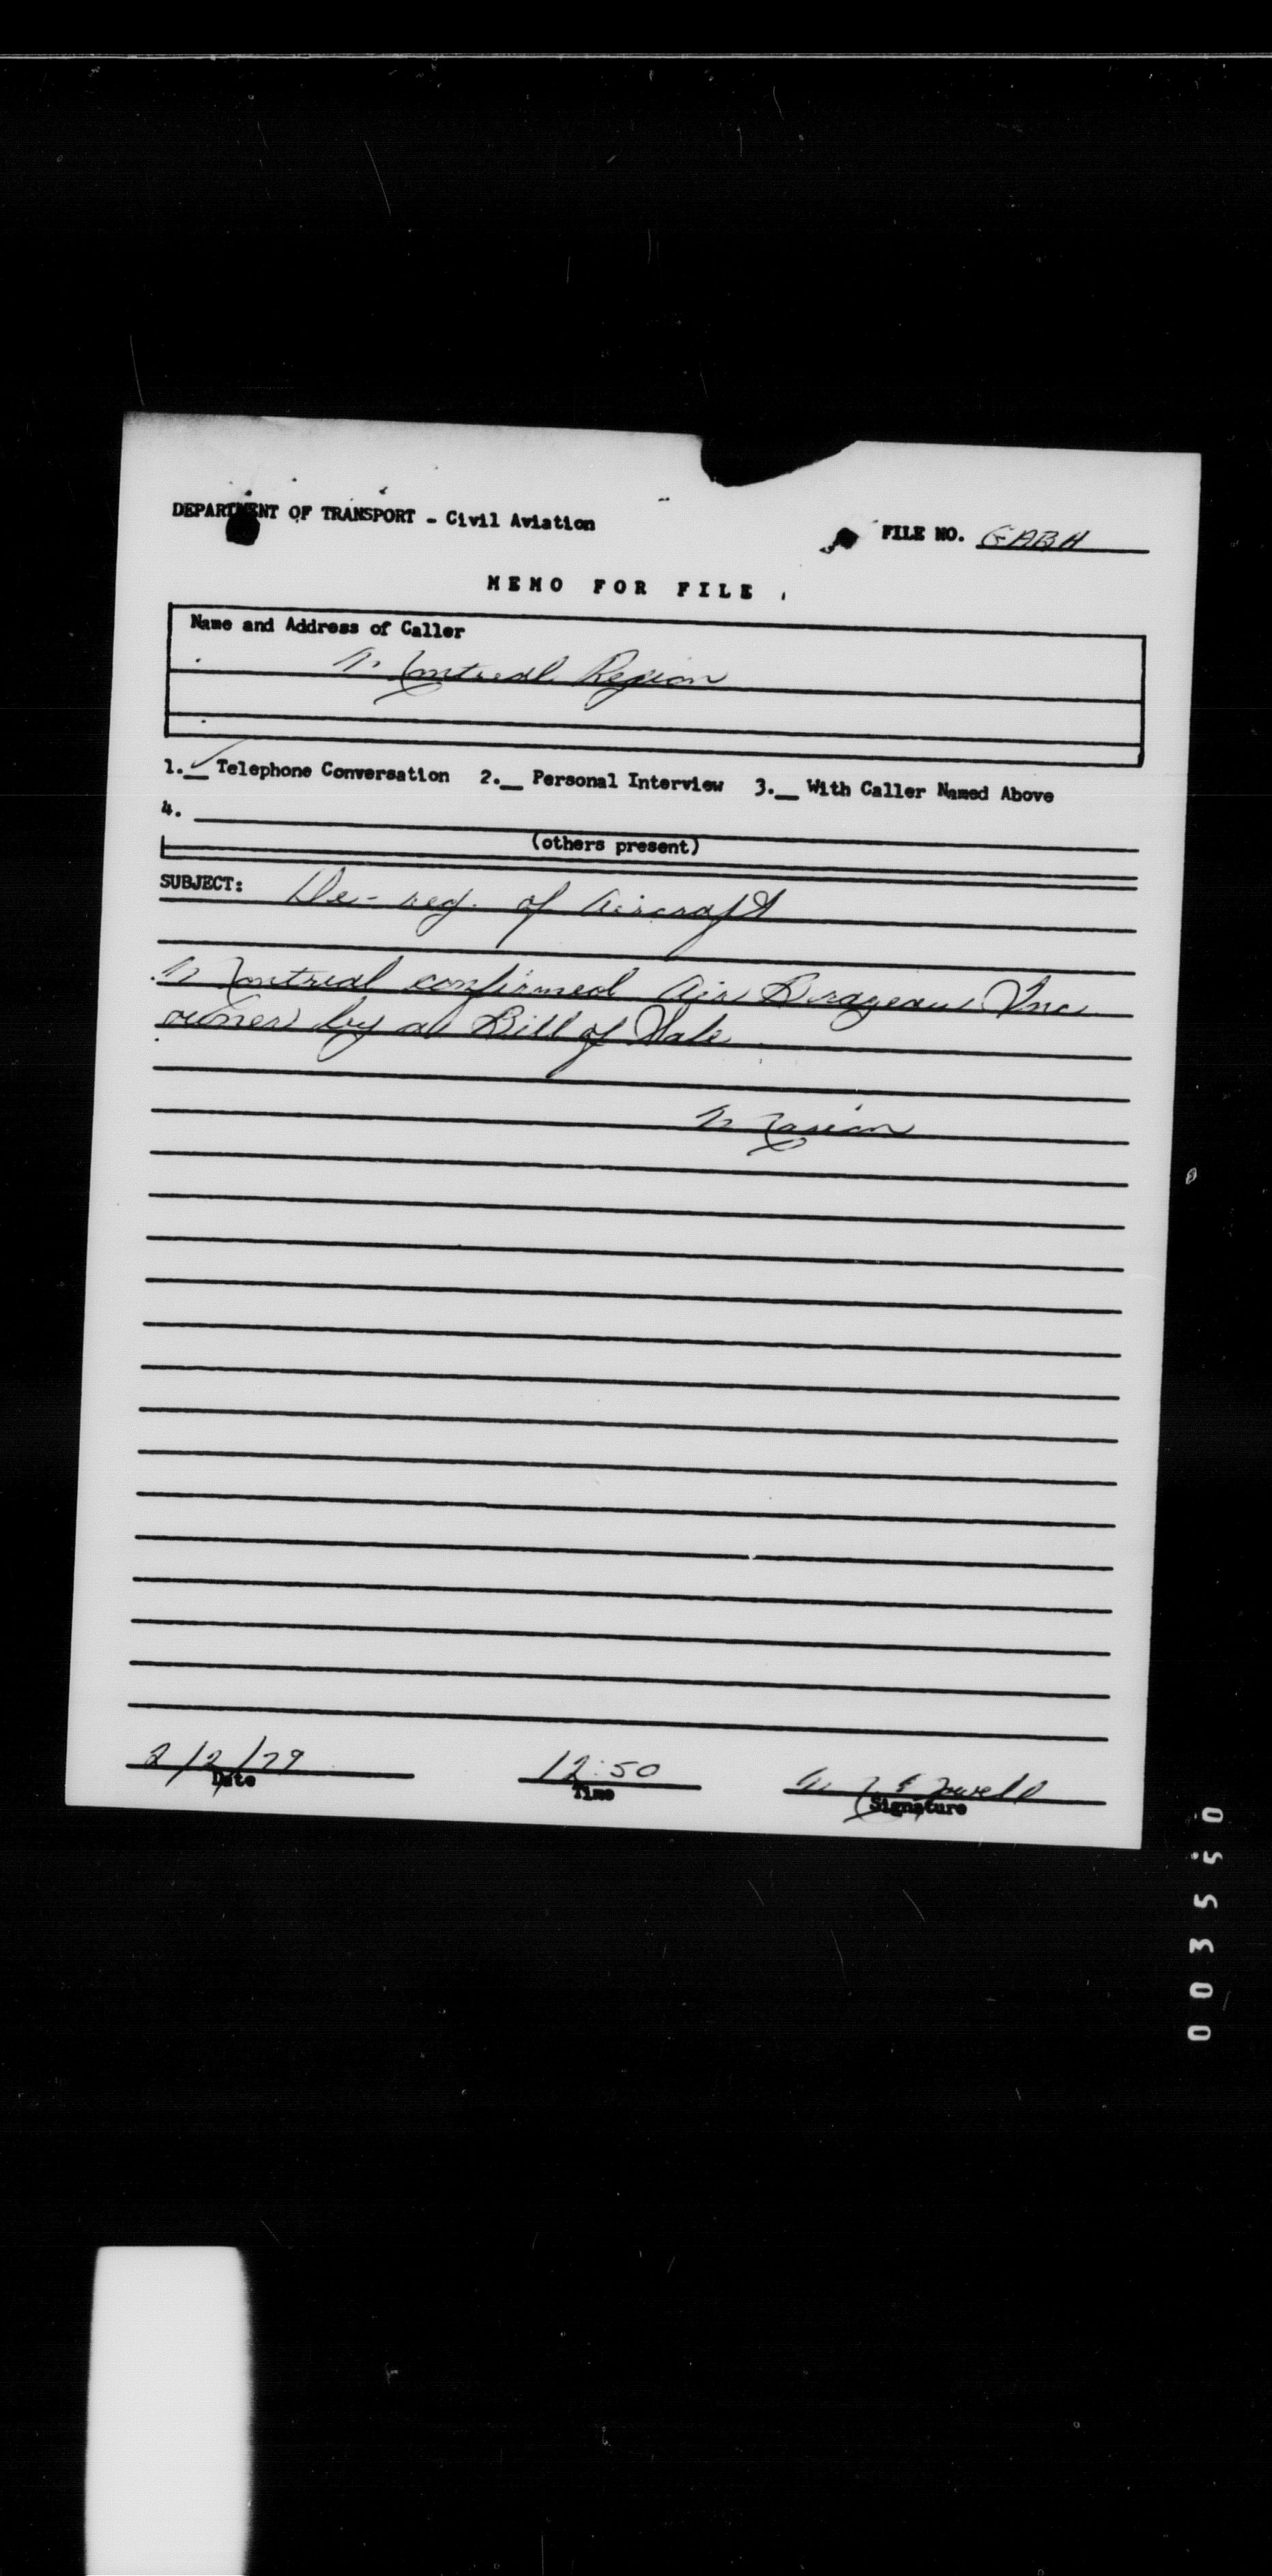 DEPARTMENT OF TRANSPORT - Civil Aviation
FILE NO. GABH
MEMO FOR FILE
Name and Address of Caller
Montreal Region
1. ✓ Telephone Conversation 2.__ Personal Interview 3.__ With Caller Named Above
4.
(others present)
SUBJECT: De-reg. of Aircraft
Montreal confirmed Air Brazeau Inc
owner by a Bill of Sale
Marion
2/2/79 12:50
Date Time Signature
003550